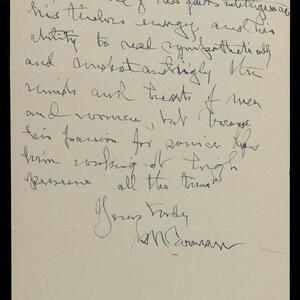 of his great intelligence
his tireless energy, and his
ability to read sympathetically
and understandingly the
minds and hearts of men
and women, but because
his passion for service keeps
him working at high
pressure "all the time"
Yours truly